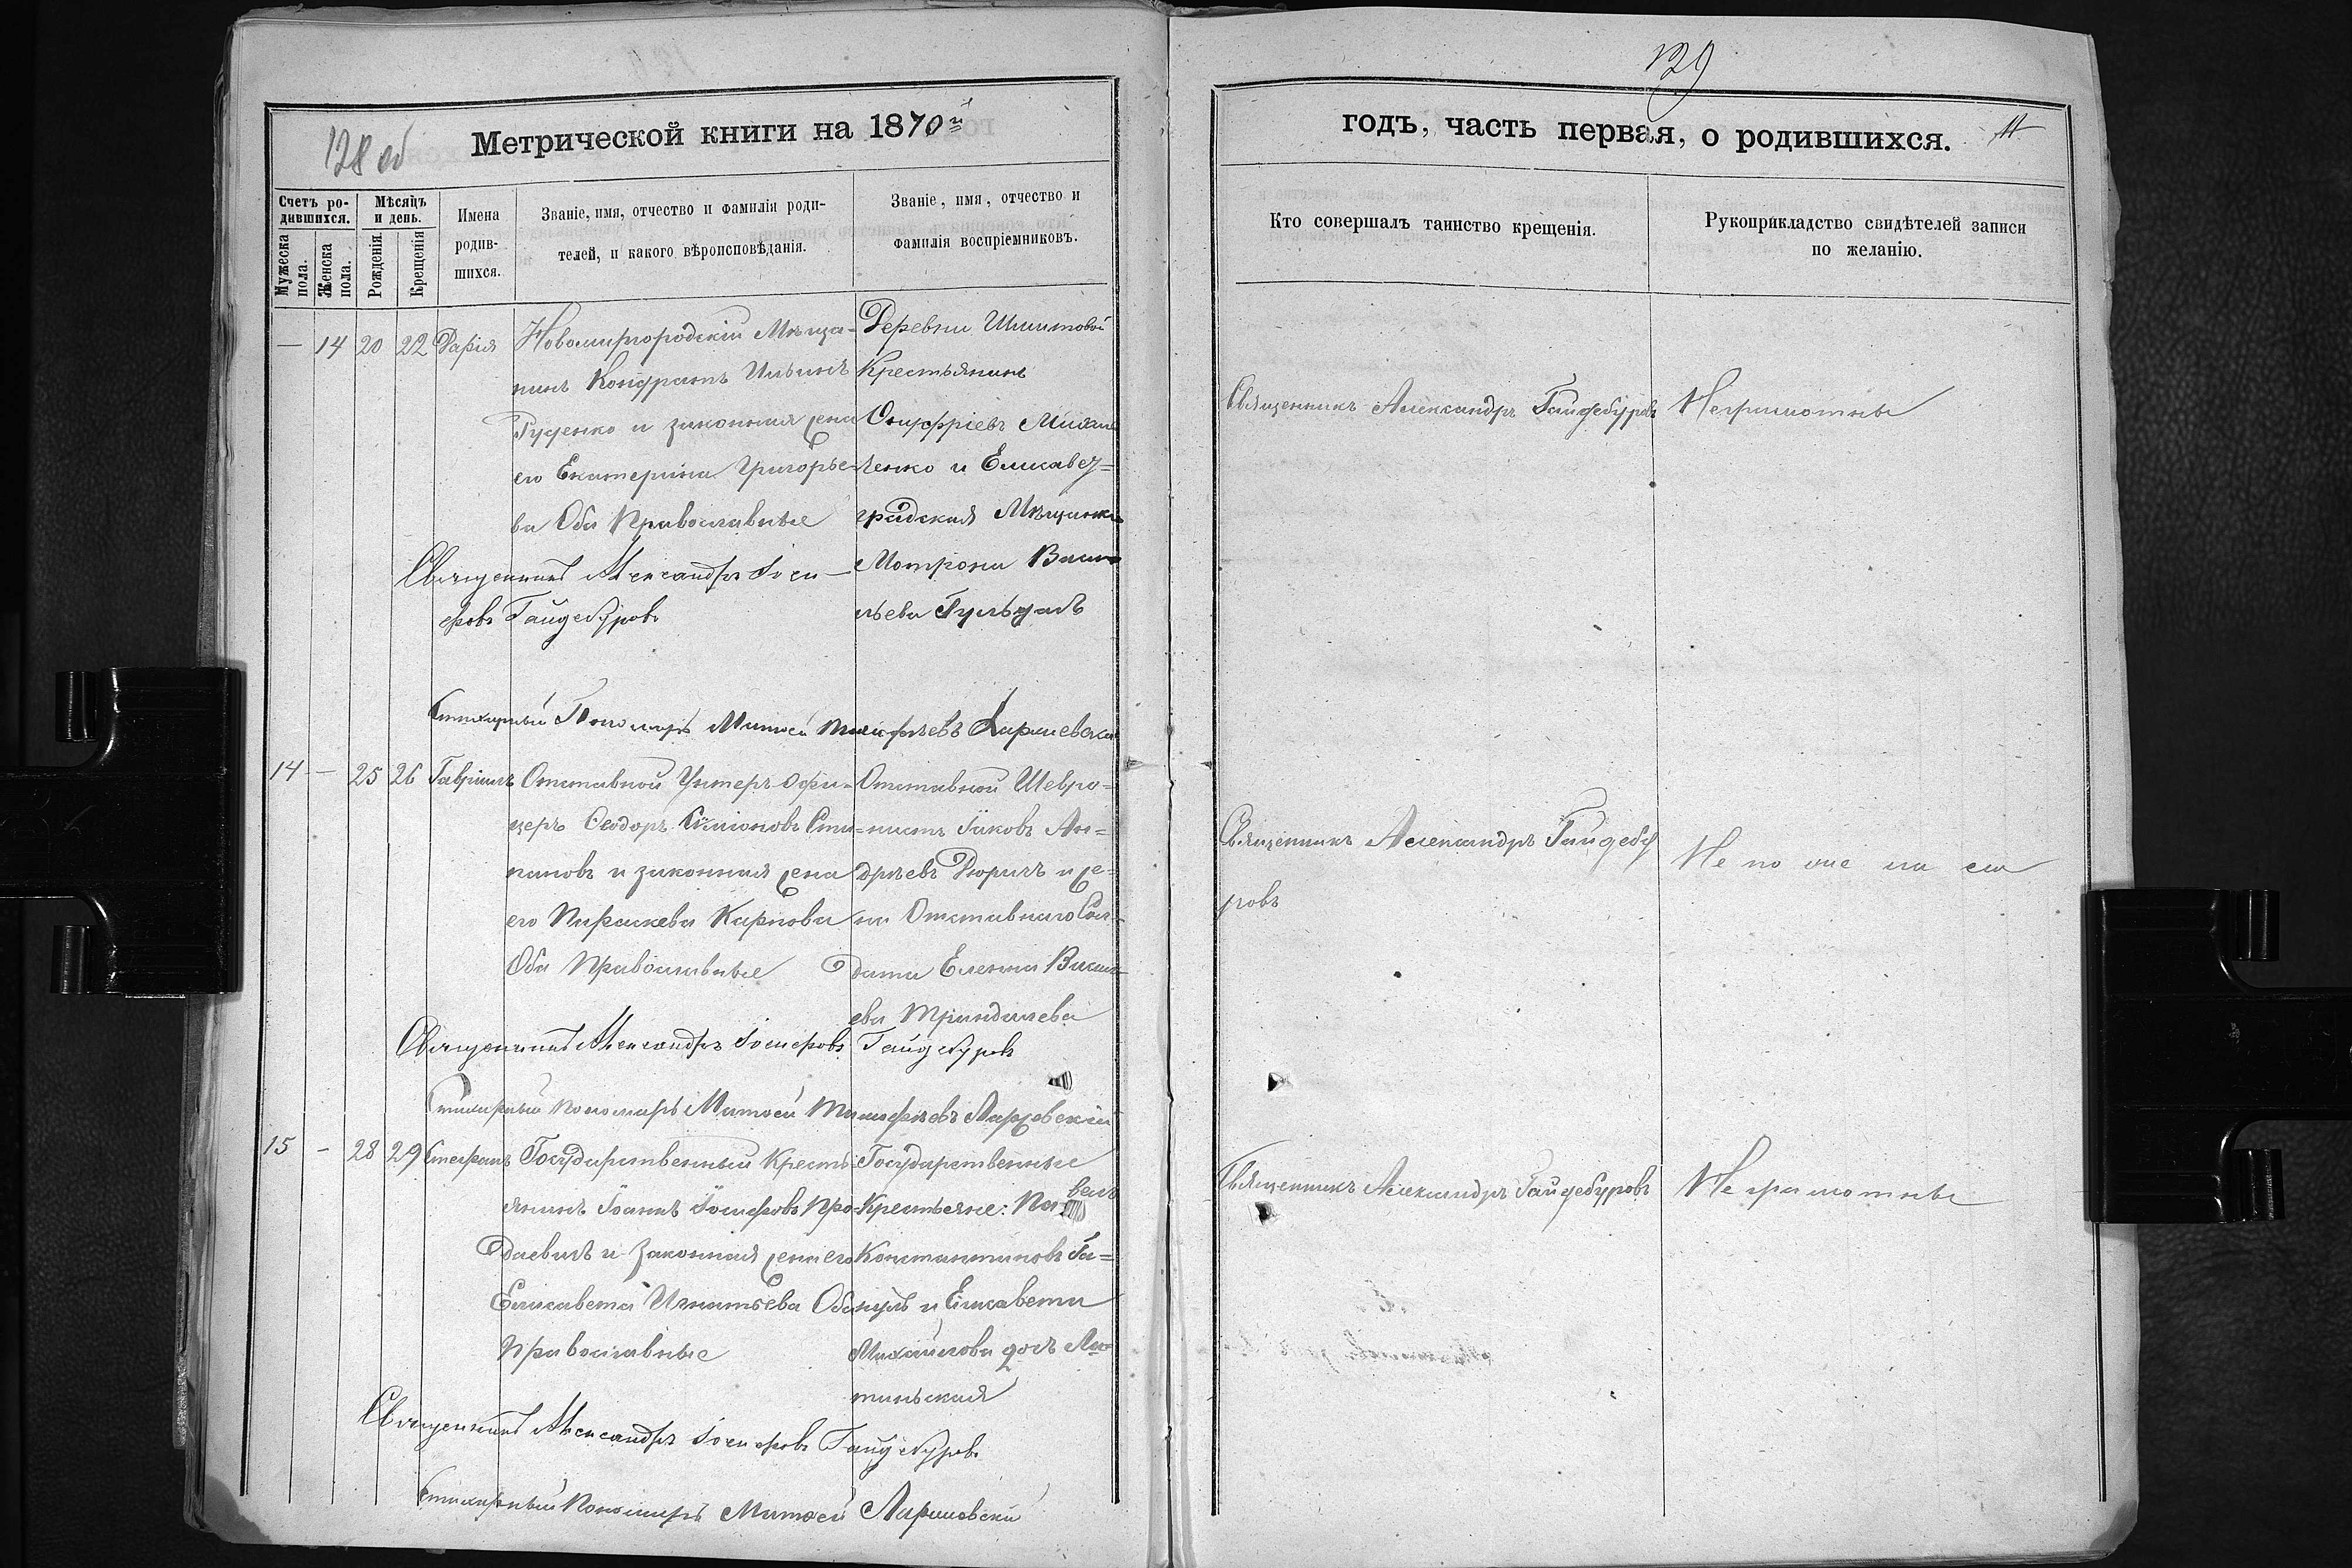 128 об
Метрической книги на 1870й
Счетъ ро-
дившихся.
Мужеска пола.
Женска пола.
Мѣсяцъ
и день.
Рожденія.
Крещенія
Имена
родив-
шихся.
Званіе, имя, отчество и фамилія роди-
телей, и какого вѣроисповѣданія.
Званіе, имя, отчество и
фамилія воспріемниковъ.
— 14 20 22 Дарія
Новомиргородскій Мѣща-
нинъ Кондратъ Ильинъ
Руденко и законная жена
его Екатерина Григорье-
ва Оба Православные
Деревни
Крестьянинъ
Онуфріевъ
ленко и Елисавет-
градская Мѣщанка
Мотрона Васи-
льева
Священникъ Александръ Іоси-
фовъ Гайдебуровъ
Стихарный Пономарь Матѳей
14 — 25 26 Гавріилъ
Отставной Унтеръ-Офи-
церъ Ѳеодоръ Симоновъ Сте-
пановъ и законная жена
его Параскева Карпова
Оба Православные
Отставной Шевро-
нистъ Іяковъ Ан-
дреевъ и же-
на Отставнаго Сол-
дата Елена Василь-
ева
Священникъ Александръ Іосифовъ Гайдебуровъ
Стихарный Пономарь Матѳей
15 — 28 29 Стефанъ
Государственный Кресть-
янинъ Іоаннъ Іосифовъ Про-
даевичъ и законная жена его
Елисавета Игнатьева Оба
Православные
Государственные
Крестьяне: Павелъ
Константиновъ Га-
и Елисавета
Михайлова дочь
Священникъ Александръ Іосифовъ Гайдебуровъ
Стихарный Пономарь Матѳей
129
годъ, часть первая, о родившихся.
Кто совершалъ таинство крещенія.
Рукоприкладство свидѣтелей записи
по желанію.
Священникъ Александръ Гайдебуровъ
Неграмотны
Священникъ Александръ Гайдебу
ровъ
Не пожелали
Священникъ Александръ Гайдебуровъ
Неграмотны